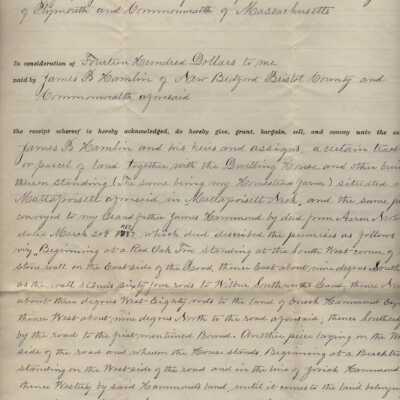 of Plymouth and Commonwealth of Massachusetts
In consideration of Fourteen Hundred Dollars to me
paid by James B Hamlin of New Bedford Bristol County and
Commonwealth aforesaid
the receipt whereof is hereby acknowledged, do hereby give, grant, bargain, sell, and convey unto the
James B Hamlin and his heirs and assigns, a certain tract
or parcel of land together with the Dwelling House and other
thereon standing (The same being my Homestead farm) situated
Mattapoisett aforesaid in Mattapoisett Neck, and the same
conveyed to my Grandfather James Hammond by deed from Aaron
date March 20th which deed described the premises as follows
viz, Beginning at a Red Oak Tree standing at the South West corner of
stone wall on the East side of the Road, thence East about nine degrees South
as the wall stands sixty four rods to Wilbur Southworths Land, thence
about three degrees West Eighty rods to the land of Enoch Hammond
thence West about nine degrees North to the road aforesaid, thence
by the road to the first mentioned Bound. Another piece laying on the
side of the road and whereon the House stands. Beginning at a
standing on the West side of the road and in the line of Josiah Hammond
thence Westerly by said Hammonds land, until it comes to the land